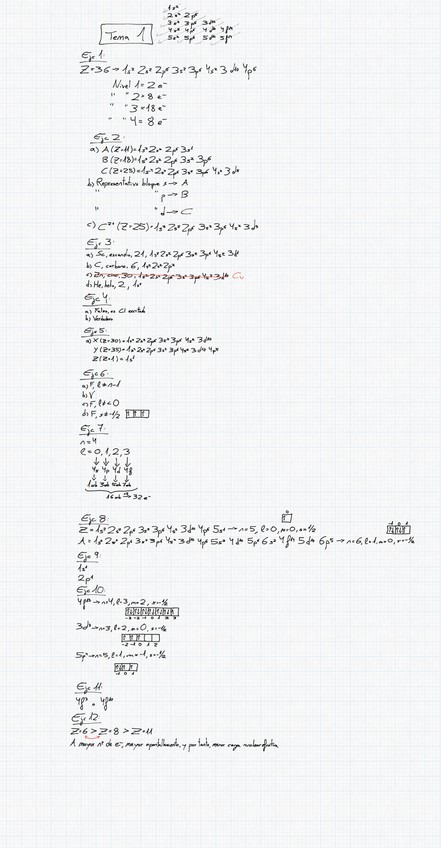 Tema 1
1s²
2s² 2p⁶
3s² 3p⁶ 3d¹⁰
4s² 4p⁶ 4d¹⁰ 4f¹⁴
5s² 5p⁶ 5d¹⁰ 5f¹⁴
Ejc 1:
Z=36→ 1s² 2s² 2p⁶ 3s² 3p⁶ 4s² 3d¹⁰ 4p⁶
Nivel 1 = 2 e⁻
" " 2 = 8 e⁻
" " 3 = 18 e⁻
" " 4 = 8 e⁻
Ejc 2:
a) A (Z=11)= 1s² 2s² 2p⁶ 3s¹
B (Z=18)= 1s² 2s² 2p⁶ 3s² 3p⁶
C (Z=25)= 1s² 2s² 2p⁶ 3s² 3p⁶ 4s² 3d⁵
b) Representativo bloque s → A
" " p → B
" " d → C
c) C²⁺ (Z=25)= 1s² 2s² 2p⁶ 3s² 3p⁶ 4s² 3d
Ejc 3:
a) Sc, escandio, 21, 1s² 2s² 2p⁶ 3s² 3p⁶ 4s² 3d¹
b) C, carbono, 6, 1s² 2s² 2p²
d) He, helio, 2, 1s²
Ejc 4:
b) Verdadero
Ejc 5:
a) X (Z=30)= 1s² 2s² 2p⁶ 3s² 3p⁶ 4s² 3d¹⁰
Y (Z=35)= 1s² 2s² 2p⁶ 3s² 3p⁶ 4s² 3d¹⁰ 4p⁵
Z (Z=1)= 1s¹
Ejc 6:
a) F, l≠n-1
b) V
c) F, l≮0
d) F, s≠-1/2
Ejc 7:
n=4
l=0, 1, 2, 3
4s 4p 4d 4f
1orb 3orb 5orb 7orb
16 orb → 32 e⁻
Ejc 8:
Z= 1s² 2s² 2p⁶ 3s² 3p⁶ 4s² 3d¹⁰ 4p⁶ 5s¹ → n=5, l=0, m=0, s=+1/2
A= 1s² 2s² 2p⁶ 3s² 3p⁶ 4s² 3d¹⁰ 4p⁶ 5s² 4d¹⁰ 5p⁶ 6s² 4f¹⁴ 5d¹⁰ 6p⁵ → n=6, l=1, m=0, s=-1/2
Ejc 9:
1s¹
2p¹
Ejc 10:
→ n=4, l=3, m=2, s=-1/2
-3 -2 -1 0 1 2 3
→ n=3, l=2, m=0, s=+1/2
-2 -1 0 1 2
→ n=5, l=1, m=-1, s=-1/2
-1 0 1
Ejc 11:
Ejc 12:
Z=6 > Z=8 > Z=11
A mayor nº de e⁻, mayor apantallamiento, y por tanto, menor carga nuclear efectiva